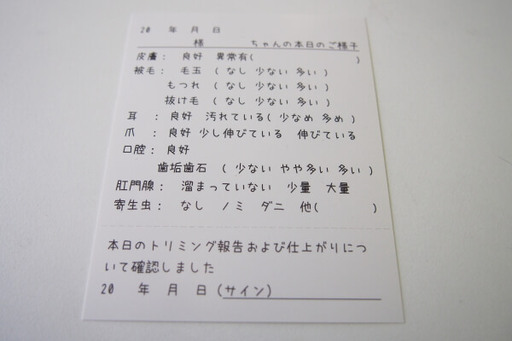 20 年 月 日
様 ちゃんの本日のご様子
皮膚： 良好 異常有( )
被毛： 毛玉 ( なし 少ない 多い )
もつれ ( なし 少ない 多い )
抜け毛 ( なし 少ない 多い )
耳 ： 良好 汚れている( 少なめ 多め )
爪 ： 良好 少し伸びている 伸びている
口腔： 良好
歯垢歯石 ( 少ない やや多い 多い )
肛門腺： 溜まっていない 少量 大量
寄生虫： なし ノミ ダニ 他( )
本日のトリミング報告および仕上がりにつ
いて確認しました
20 年 月 日 (サイン)